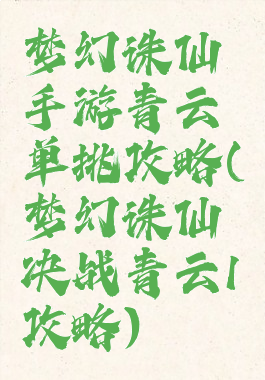 梦幻诛仙
手游青云
单挑攻略(
梦幻诛仙
决战青云l
攻略)